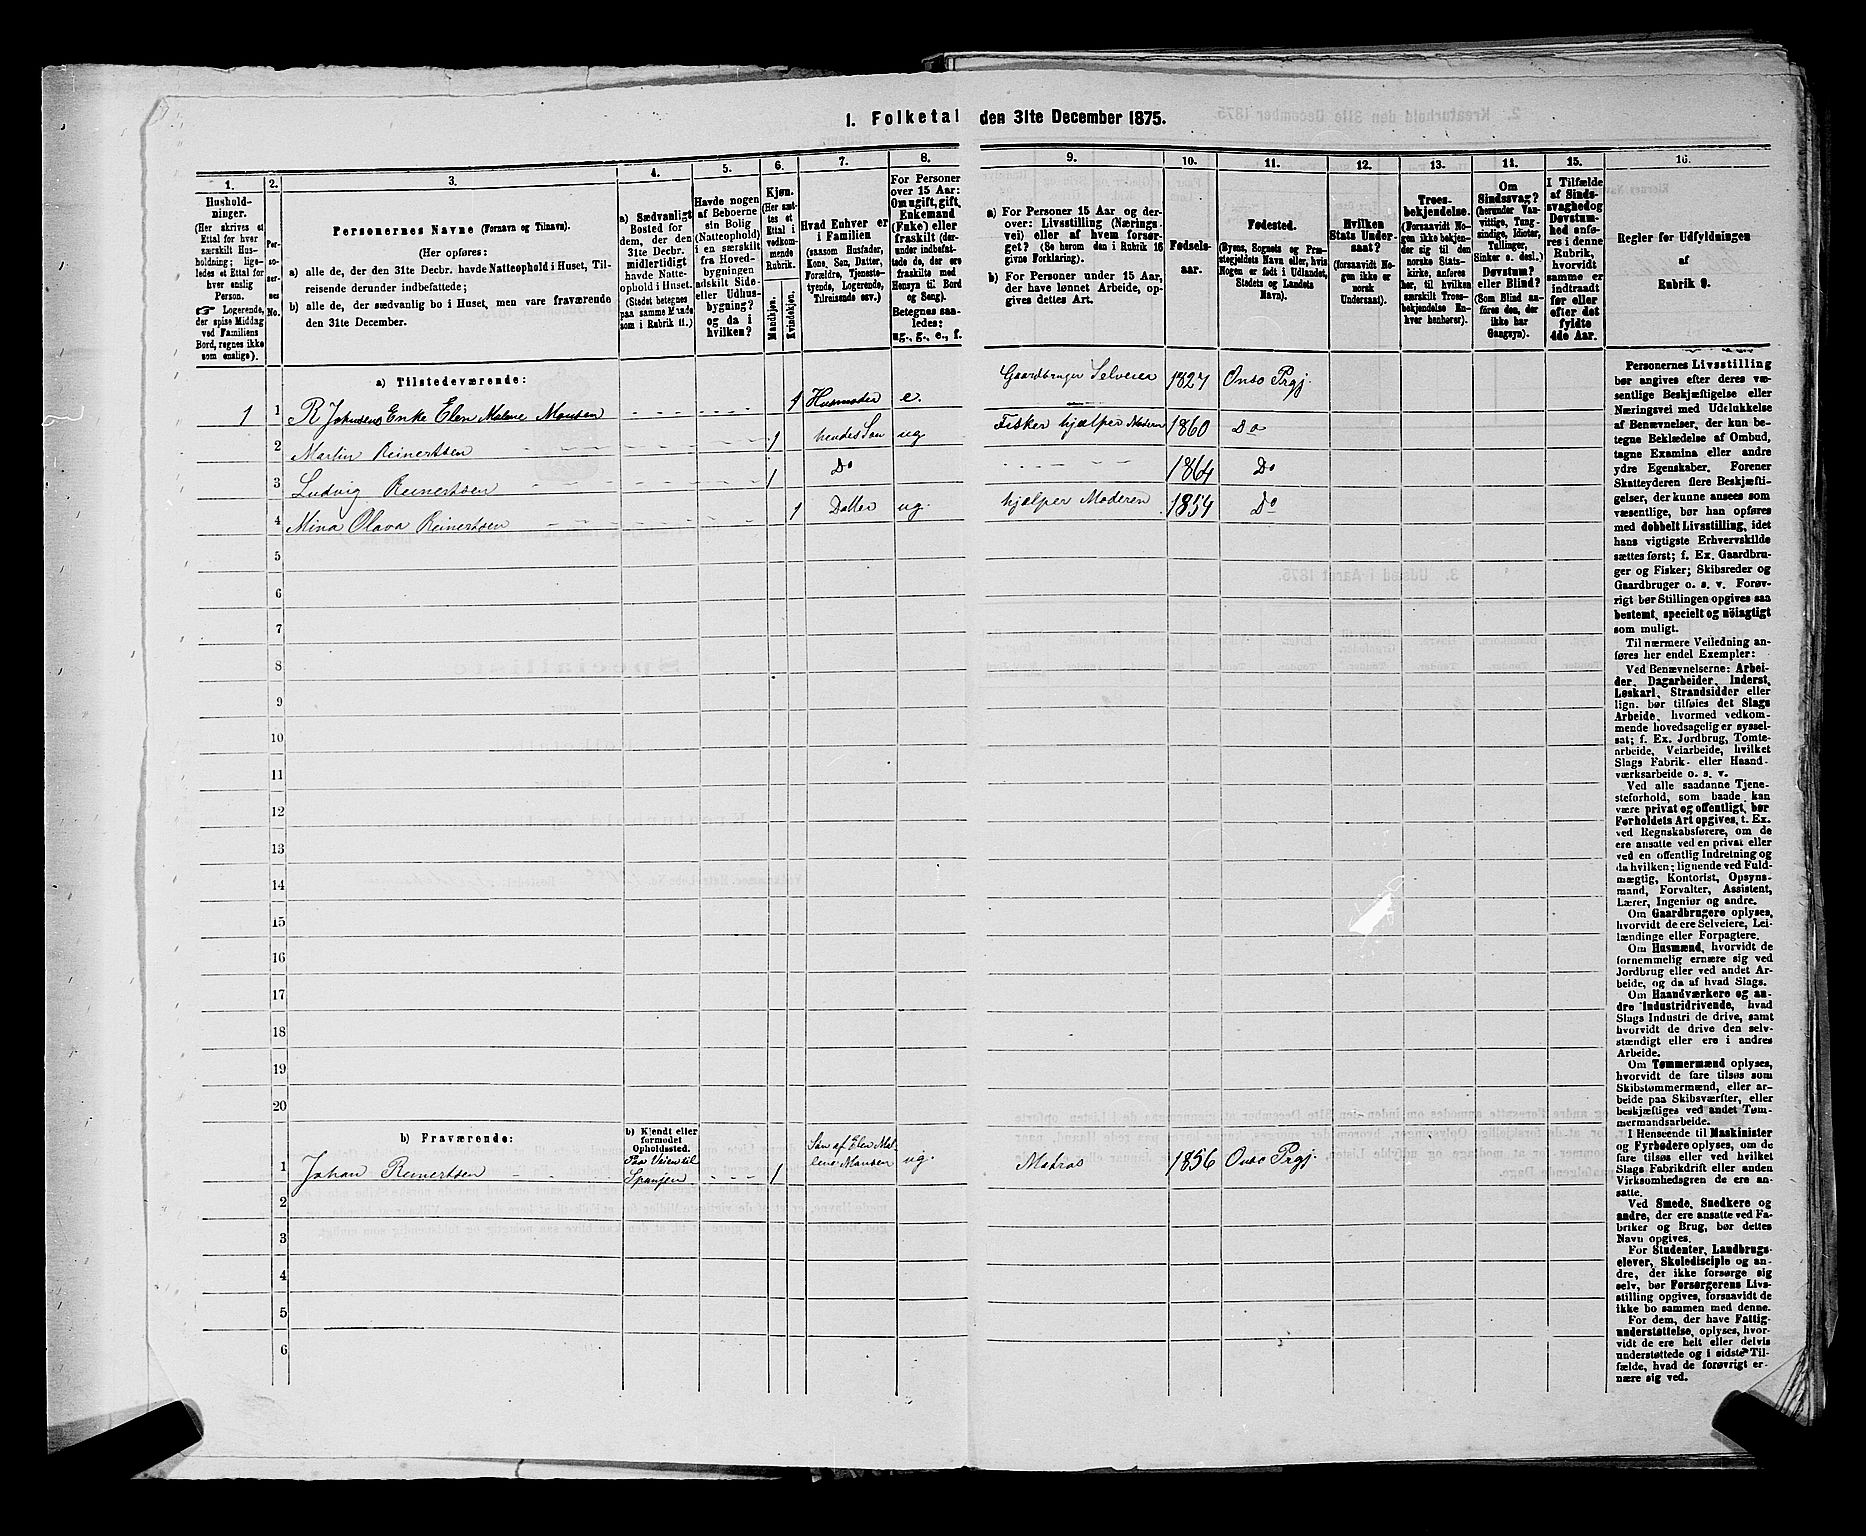 1. Folketal den 31te December 1875.
1.
2.
3.
4.
5.
6.
7.
8.
9.
10.
11.
12.
13.
14.
15.
16.
Hushold-
ninger.
(Her skrives et
Ettal for hver
særskilt Hus-
holdning; lige-
ledes et Ettal for
hver enslig
Person.
☞ Logerende,
der spise Middag
ved Familiens
Bord, regnes ikke
som enslige).
Per-
so-
ner-
nes
No.
Personernes Navne (Fornavn og Tilnavn).
(Her opføres:
a) alle de, der den 31te Decbr. havde Natteophold i Huset, Til-
reisende derunder indbefattede;
b) alle de, der sædvanlig bo i Huset, men vare fraværende
den 31te December.
a) Sædvanligt
Bosted for
dem, der den
31te Decbr.
midlertidigt
havde Natte-
ophold i Huset.
(Stedet betegnes
paa samme Maade
som i Rubrik 11.)
Havde nogen
af Beboerne
sin Bolig
(Natteophold)
i en særskilt
fra Hoved-
bygningen
adskilt Side-
eller Udhus-
bygning?
og da i
hvilken?
Kjøn.
(Her sæt-
tes et
Ettal i
vedkom-
mende
Rubrik.
Mandkjøn.
Kvindekjøn.
Hvad Enhver er
i Familien
(saasom Husfader,
Kone, Søn, Datter,
Forældre, Tjeneste-
tyende, Logerende,
Tilreisende osv.)
For Personer
over 15 Aar:
Om ugift, gift,
Enkemand
(Enke) eller
fraskilt (der-
under indbefat-
tede de, der ere
fraskilte med
Hensyn til Bord
og Seng).
Betegnes saa-
ledes:
ug., g., e., f.
a) For Personer 15 Aar og der-
over: Livsstilling (Nærings-
vei) eller af hvem forsør-
get? (Se herom den i Rubrik 16
givne Forklaring).
b) For Personer under 15 Aar,
der have lønnet Arbeide, op-
gives dettes Art.
Fødsels-
aar.
Fødested.
(Byens, Sognets og Præ-
stegjeldets Navn eller, hvis
Nogen er født i Udlandet,
Stedets og Landets
Navn).
Hvilken
Stats Under-
saat?
(forsaavidt No-
gen ikke er
norsk
Undersaat).
Troes-
bekjendelse.
(Forsaavidt No-
gen ikke bekjen-
der sig til den
norske Stats-
kirke, anføres
her, til hvilken
særskilt Troes-
bekjendelse En-
hver henhører).
Om
Sindssvag?
(herunder Van-
vittige, Tung-
sindige, Idioter,
Tullinger,
Sinker o. desl.)
Døvstum?
eller Blind?
(Som Blind an-
føres den, der
ikke har
Gangsyn).
I Tilfælde
af Sinds-
svaghed og
Døvstum-
hed anfø-
res i denne
Rubrik,
hvorvidt
samme er
indtraadt
før eller
efter det
fyldte
4de Aar.
Regler for Udfyldningen
af
Rubrik 9.
a) Tilstedeværende:
1 1 R Johnsens Enke Elen Malene Monsen 1 Husmoder e. Gaardbruger Selveier 1827 Onsø Prgj.
2 Martin Reinertsen 1 hendes Søn ug. Fisker hjælper Modren 1860 Do
3 Ludvig Reinertsen 1 Do 1864 Do
4 Mina Olava Reinertsen 1 Datter ug. hjælper Moderen 1854 Do
5
6
7
8
9
10
11
12
13
14
15
16
17
18
19
20
b) Fraværende:
b) Kjendt eller
formodet
Opholdssted.
1 Johan Reinertsen Paa Veien til
Spanjen 1 Søn af Elen Ma-
lene Monsen ug. Matros 1856 Onsø Prgj.
2
3
4
5
6
Personernes Livsstilling
bør angives efter deres væ-
sentlige Beskjæftigelse eller
Næringsvei med Udelukkelse
af Benævnelser, der kun be-
tegne Beklædelse af Ombud,
tagne Examina eller andre
ydre Egenskaber. Forener
Skatteyderen flere Beskjæfti-
gelser, der kunne ansees som
væsentlige, bør han opføres
med dobbelt Livsstilling, idet
hans vigtigste Erhvervskilde
sættes først; f. Ex. Gaardbru-
ger og Fisker; Skibsreder og
Gaardbruger o. s. v. Forøv-
rigt bør Stillingen opgives saa
bestemt, specielt og nöiagtigt
som muligt.
Til nærmere Veiledning an-
føres her endel Exempler:
Ved Benævnelserne: Arbei-
der, Dagarbeider, Inderst,
Løskarl, Strandsidder eller
lign. bør tilføies det Slags
Arbeide, hvormed vedkom-
mende hovedsagelig er syssel-
sat; f. Ex. Jordbrug, Tomte-
arbeide, Veiarbeide, hvilket
Slags Fabrik- eller Haand-
værksarbeide o. s. v.
Ved alle saadanne Tjene-
steforhold, som baade kan
være privat og offentligt, bør
Forholdets Art opgives, t. Ex.
ved Regnskabsførere, om de
ere ansatte ved en privat eller
ved en offentlig Indretning og
da hvilken; lignende ved Fuld-
mægtig, Kontorist, Opsyns-
mand, Forvalter, Assistent,
Lærer, Ingeniør og andre.
Om Gaardbrugere oplyses,
hvorvidt de ere Selveiere, Lei-
lændinge eller Forpagtere.
Om Husmænd, hvorvidt de
fornemmelig ernære sig ved
Jordbrug eller ved andet Ar-
beide, og da af hvad Slags.
Om Haandværkere og an-
dre Industridrivende, hvad
Slags Industri de drive, samt
hvorvidt de drive den selv-
stændigt eller ere i andres
Arbeide.
Om Tømmermænd oplyses,
hvorvidt de fare tilsøs som
Skibstømmermænd, eller ar-
beide paa Skibsværfter, eller
beskjæftiges ved andet Tøm-
mermandsarbeide.
I Henseende til Maskinister
og Fyrbødere oplyses, om de
fare tilsøs eller ved hvilket
Slags Fabrikdrift eller anden
Virksomhedsgren de ere an-
satte.
Ved Smede, Snedkere og
andre, der ere ansatte ved Fa-
briker og Brug, bør dettes
Navn opgives.
For Studenter, Landbrugs-
elever, Skoledisciple og an-
dre, der ikke forsørge sig
selv, bør Forsørgerens Livs-
stilling opgives, forsaavidt de
ikke bo sammen med denne.
For dem, der have Fattig-
understøttelse, oplyses, hvor-
vidt de ere helt eller delvis
understøttede og i sidste Til-
fælde, hvad de forøvrigt er-
nære sig ved.